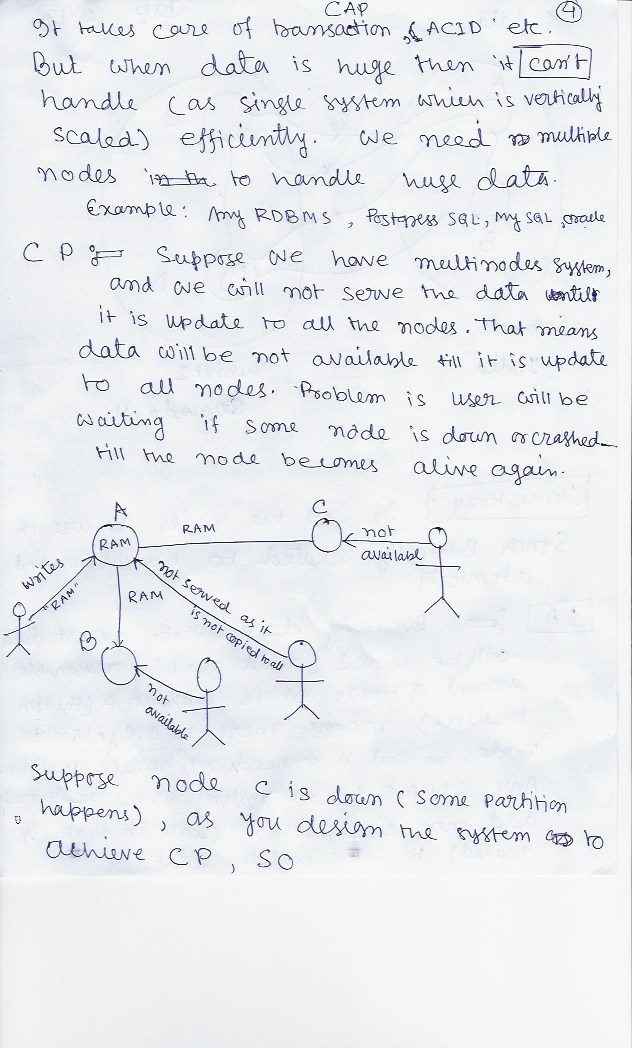 CAP
4
It takes care of transaction, ACID etc.
But when data is huge then it can't
handle (as single system which is vertically
scaled) efficiently. We need multiple
nodes in the to handle huge data.
Example: Any RDBMS, Postgress SQL, My SQL, oracle
CP :- Suppose we have multinodes system,
and we will not serve the data until
it is update to all the nodes. That means
data will be not available till it is update
to all nodes. Problem is user will be
waiting if some node is down or crashed
till the node becomes alive again.
A
C
RAM
RAM
not
available
writes
"RAM"
RAM
not served as it
is not copied to all
B
not
available
Suppose node C is down (some partition
happens), as you design the system to
achieve CP, SO